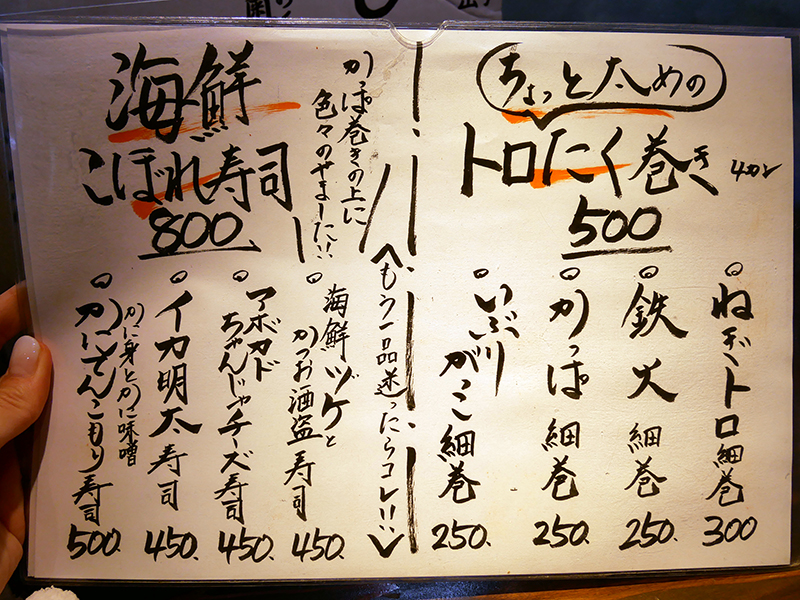 ちょっと太めの
トロにく巻き 4カン
500
ねぎトロ細巻 300
鉄火細巻 250.
かっぱ細巻 250.
いぶりがっこ細巻 250.
海鮮
こぼれ寿司
800
かっぱ巻きの上に
色々のせました!!
もう一品迷ったらコレ!!
海鮮ヅケと
かつお酒盗寿司 450.
アボカド
ちゃんじゃチーズ寿司 450.
イカ明太寿司 450.
かに身とかに味噌
かにてんこもり寿司 500.